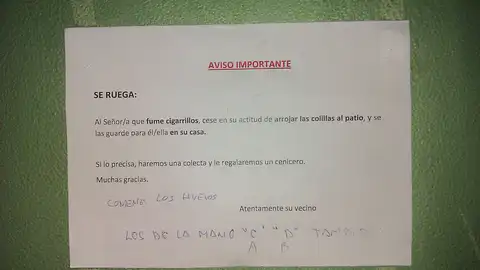 AVISO IMPORTANTE
SE RUEGA:
Al Señor/a que fume cigarrillos, cese en su actitud de arrojar las colillas al patio, y se
las guarde para él/ella en su casa.
Si lo precisa, haremos una colecta y le regalaremos un cenicero.
Muchas gracias.
COMEME LOS HUEVOS
Atentamente su vecino
LOS DE LA MANO "C" "D" TAMBIEN
A B